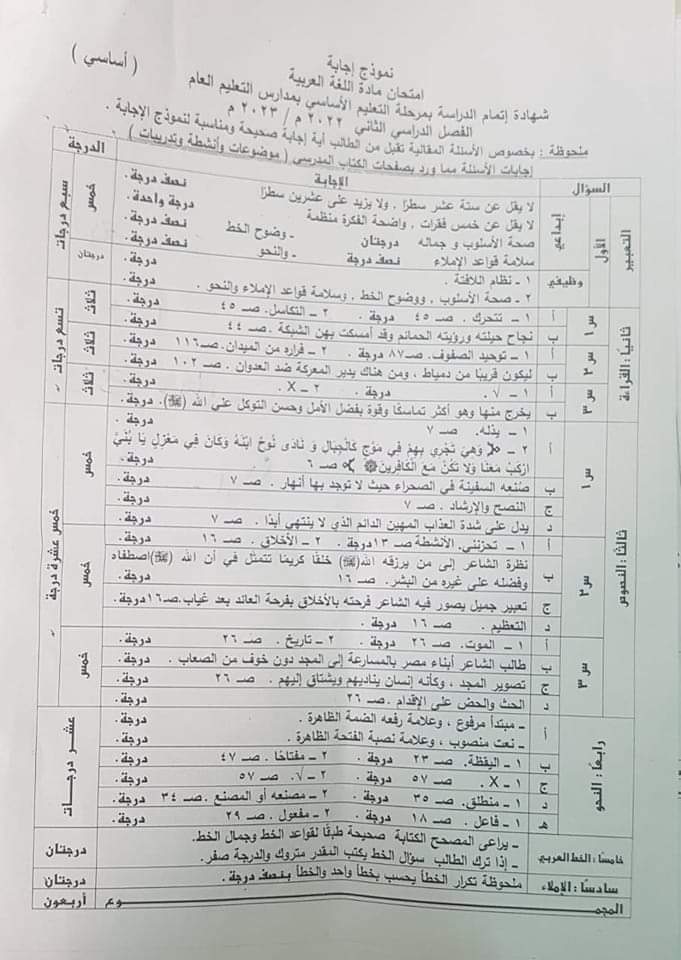 نموذج إجابة
امتحان مادة اللغة العربية
( أساسي )
شهادة إتمام الدراسة بمرحلة التعليم الأساسي بمدارس التعليم العام
الفصل الدراسي الثاني ٢٠٢٢ م / ٢٠٢٣ م
ملحوظة : بخصوص الأسئلة المقالية تقبل من الطالب أية إجابة صحيحة ومناسبة لنموذج الإجابة .
إجابات الأسئلة مما ورد بصفحات الكتاب المدرسي ( موضوعات وأنشطة وتدريبات )
السؤال الإجابة الدرجة
أولاً التعبير
إبداعي
لا يقل عن ستة عشر سطرًا ، ولا يزيد على عشرين سطرًا نصف درجة .
لا يقل عن خمس فقرات ، واضحة الفكرة منظمة درجة واحدة .
صحة الأسلوب و جماله درجتان - وضوح الخط نصف درجة .
سلامة قواعد الإملاء نصف درجة - والنحو نصف درجة .
خمس
سبع درجات
وظيفي
١ - نظام اللافتة . درجة .
٢ - صحة الأسلوب ، ووضوح الخط ، وسلامة قواعد الإملاء والنحو . درجة .
درجتان
ثانيًا : القراءة
س ١
أ ١ - تتحرك . صـ ٤٥ درجة . ٢ - التكاسل . صـ ٤٥ درجة .
ب نجاح حيلته ورؤيته الحمائم وقد أمسكت بهن الشبكة . صـ ٤٤ درجة .
ثلاث
س ٢
أ ١ - توحيد الصفوف. صـ ٨٧ درجة . ٢ - فراره من الميدان. صـ ١١٦ درجة .
ب ليكون قريبًا من دمياط ، ومن هناك يدير المعركة ضد العدوان . صـ ١٠٢ درجة .
ثلاث
س ٣
أ ١ - √ . درجة . ٢ - X . درجة .
ب يخرج منها وهو أكثر تماسكًا وقوة بفضل الأمل وحسن التوكل على الله (ﷻ). درجة .
ثلاث
تسع درجات
ثالثًا : النصوص
س ١
أ ١ - يذله. صـ ٧ درجة .
٢ - وَهِيَ تَجْرِي بِهِمْ فِي مَوْجٍ كَالْجِبَالِ وَ نَادَى نُوحٌ ابْنَهُ وَكَانَ فِي مَعْزِلٍ يَا بُنَيَّ
ارْكَبْ مَعَنَا وَلَا تَكُنْ مَعَ الْكَافِرِينَ صـ ٦ درجة .
ب صُنعه السفينة في الصحراء حيث لا توجد بها أنهار . صـ ٧ درجة .
ج النصح والإرشاد . صـ ٧ درجة .
د يدل على شدة العذاب المهين الدائم الذي لا ينتهي أبدًا . صـ ٧ درجة .
خمس
س ٢
أ ١ - تحزنني. الأنشطة صـ ١٣ درجة . ٢ - الأخلاق . صـ ١٦ درجة .
ب نظرة الشاعر إلى من يرزقه الله(ﷻ) خلقًا كريمًا تتمثل في أن الله (ﷻ)اصطفاه
وفضله على غيره من البشر. صـ ١٦ درجة .
ج تعبير جميل يصور فيه الشاعر فرحته بالأخلاق بفرحة العائد بعد غياب.صـ١٦درجة.
د التعظيم . صـ ١٦ درجة .
خمس
س ٣
أ ١ - الموت. صـ ٢٦ درجة . ٢ - تاريخ . صـ ٢٦ درجة .
ب طالب الشاعر أبناء مصر بالمسارعة إلى المجد دون خوف من الصعاب . درجة .
ج تصوير المجد ، وكأنه إنسان يناديهم ويشتاق إليهم . صـ ٢٦ درجة .
د الحث والحض على الإقدام .صـ ٢٦ درجة .
خمس
خمس عشرة درجة
رابعًا : النحو
أ - مبتدأ مرفوع ، وعلامة رفعه الضمة الظاهرة . درجة .
- نعت منصوب ، وعلامة نصبة الفتحة الظاهرة . درجة .
ب ١ - اليقظة. صـ ٢٣ درجة . ٢ - مفتاحًا . صـ ٤٧ درجة .
ج ١ - X. صـ ٥٧ درجة . ٢ - √. صـ ٥٧ درجة .
د ١ - منطلق. صـ ٣٥ درجة . ٢ - مصنعه أو المصنع . صـ ٣٤ درجة .
هـ ١ - فاعل . صـ ١٨ درجة . ٢ - مفعول . صـ ٢٩ درجة .
عشر درجات
خامسًا : الخط العربي
- يراعى المصحح الكتابة صحيحة طبقًا لقواعد الخط وجمال الخط.
- إذا ترك الطالب سؤال الخط يكتب المقدر متروك والدرجة صفر.
درجتان
سادسًا : الإملاء ملحوظة تكرار الخطأ يحسب بخطأ واحد والخطأ بنصف درجة . درجتان
المجمـــوع أربعون